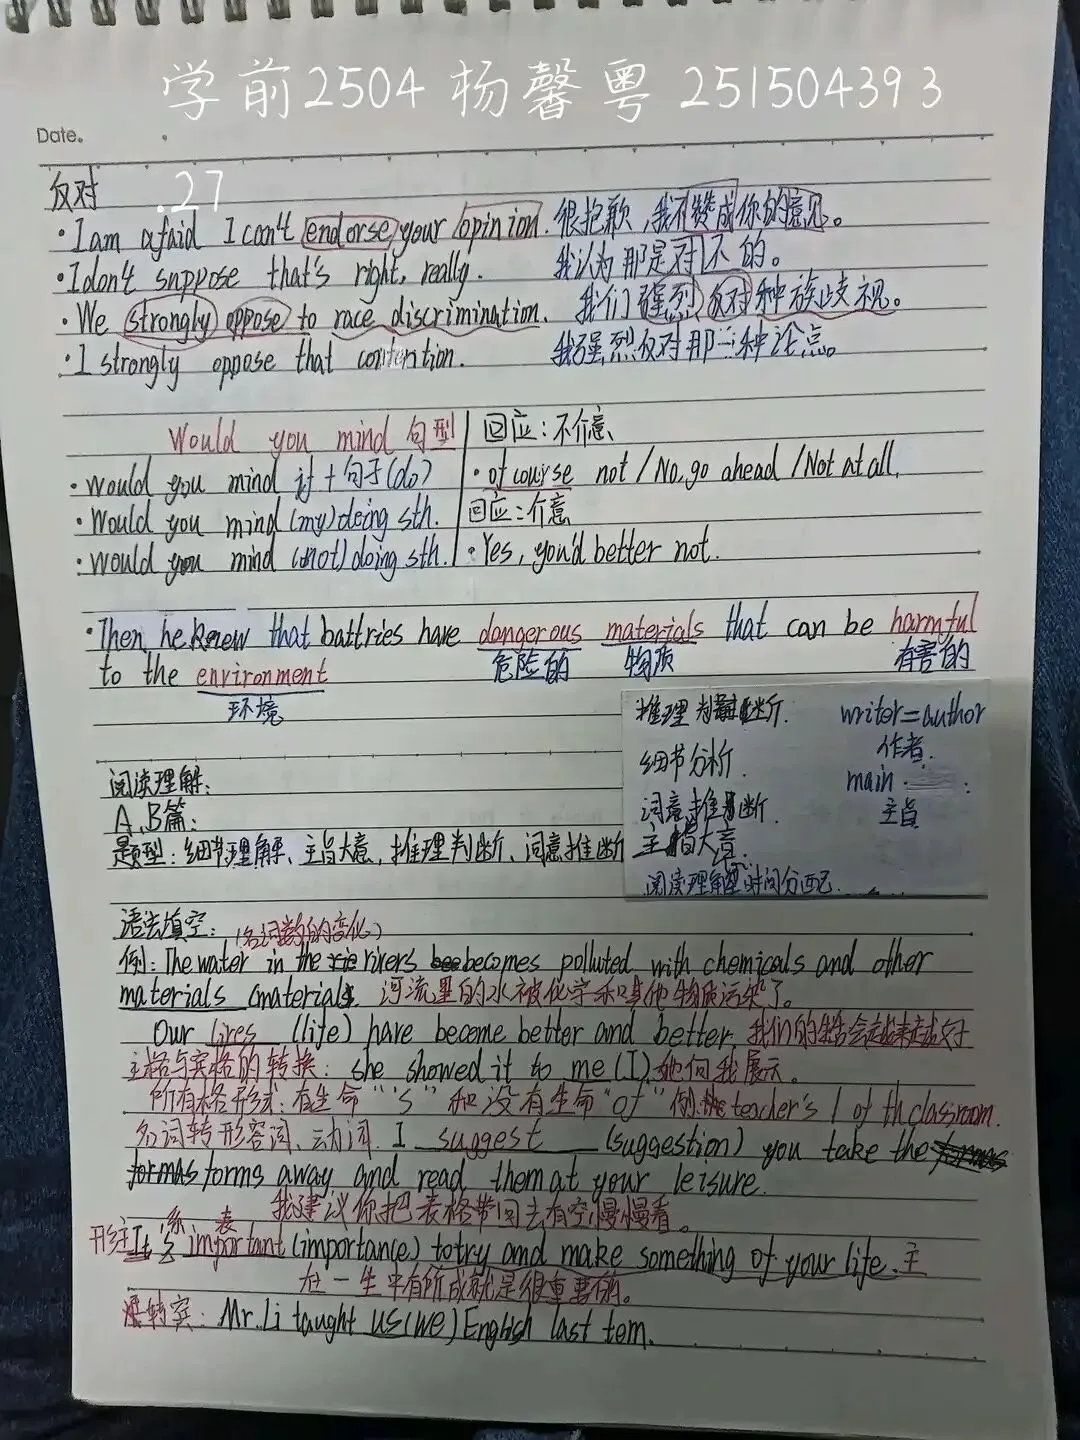 学前2504 杨馨粤 251504393
Date.
反对 .27
·I am afaid I can't endorse your opinion. 很抱歉,我不赞成你的意见。
·I don't suppose that's right, really. 我认为那是对不的。
·We strongly oppose to race discrimination. 我们强烈反对种族歧视。
·I strongly oppose that contention. 我强烈反对那一种论点。
Would you mind 句型 回应:不介意
·would you mind if+句子(do) ·of course not / No, go ahead / Not at all.
·Would you mind (my) doing sth. 回应:介意
·would you mind (not) doing sth. ·Yes, you'd better not.
·Then he knew that battries have dangerous materials that can be harmful
危险的 物质 有害的
to the environment
环境
推理判断. writer=author
细节分析. 作者.
词意推断. main
主旨
主旨大意.
阅读理解 时间分配.
阅读理解:
A、B篇:
题型:细节理解、主旨大意,推理判断、词意推断
语法填空:(名词数的变化)
例:The water in the rivers becomes polluted with chemicals and other
materials (material). 河流里的水被化学和其他物质污染了。
Our lives (life) have become better and better. 我们的生活会越来越好
主格与宾格的转换:she showed it to me (I). 她向我展示。
所有格形式:有生命"'s"和没有生命"of"例:the teacher's / of th classroom.
名词转形容词、动词. I suggest (suggestion) you take the
forms away and read them at your leisure.
我建议你把表格带回去有空慢慢看。
系 表
形主 It's important (importance) to try and make something of your life. 主
在一生中有所成就是很重要的。
转宾:Mr. Li taught us (we) English last tem.